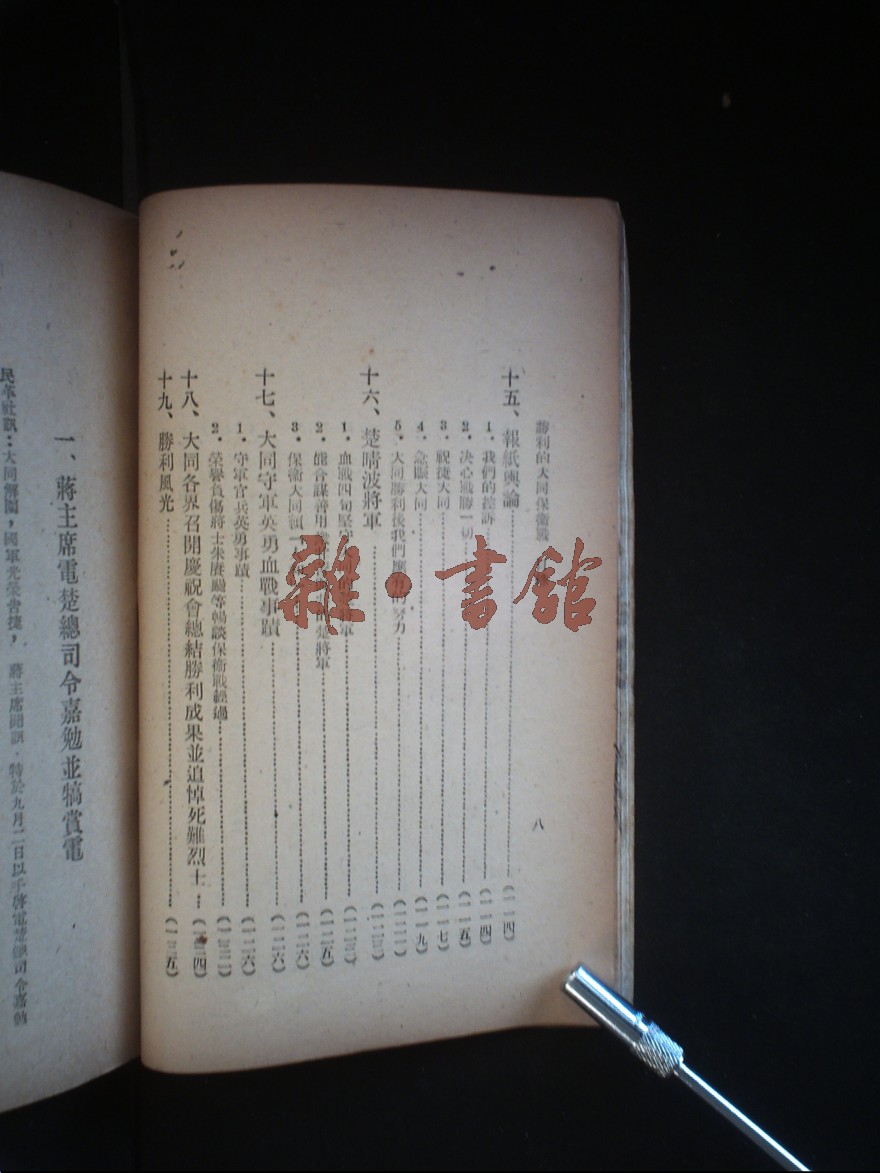 勝利的大同保衛戰
八
十五、報紙輿論(一一四)
1．我們的控訴(一一四)
2．決心戰勝一切(一一五)
3．祝捷大同(一一七)
4．急賑大同(一一九)
5．大同勝利後我們應有的努力(一二一)
十六、楚晴波將軍(一二三)
1．血戰四旬堅守
2．能合謀善用 楚將軍(一二五)
3．保衛大同 (一二六)
十七、大同守軍英勇血戰事蹟(一二六)
1．守軍官兵英勇事蹟(一二六)
2．榮譽負傷將士朱賡颺等暢談保衛戰經過
十八、大同各界召開慶祝會總結勝利成果並追悼死難烈士
十九、勝利風光(一三五)
一、蔣主席電楚總司令嘉勉並犒賞電
民革社訊：大同解圍，國軍光榮告捷，蔣主席聞訊，特於九月二日以手啓電楚總司令嘉勉
雜·書館